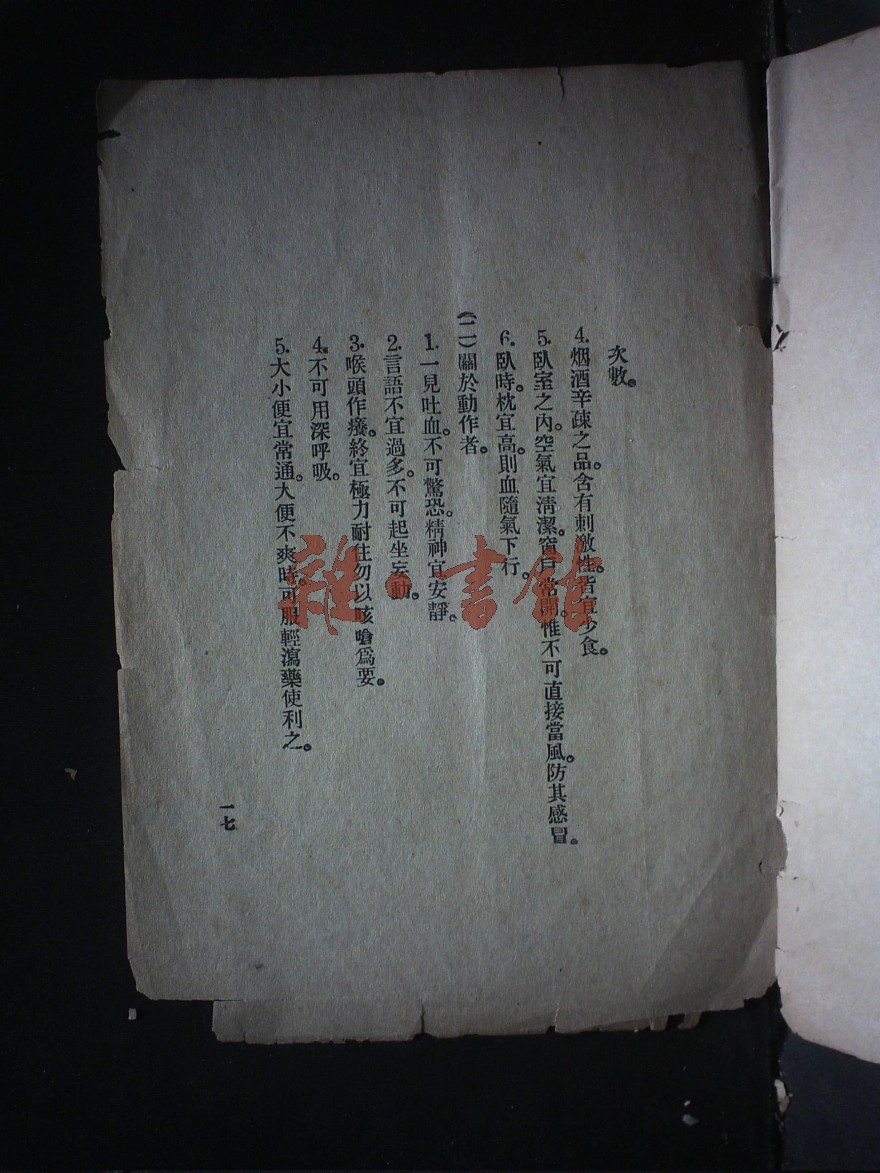 次數。
4. 烟酒辛疎之品。含有刺激性。皆宜少食。
5. 臥室之內。空氣宜淸潔。窗戶常開。惟不可直接當風。防其感冒。
6. 臥時。枕宜高。則血隨氣下行。
(二)關於動作者。
1. 一見吐血。不可驚恐。精神宜安靜。
2. 言語不宜過多。不可起坐妄動。
3. 喉頭作癢。終宜極力耐住。勿以咳嗆爲要。
4. 不可用深呼吸。
5. 大小便宜常通。大便不爽時。可服輕瀉藥使利之。
一七
雜·書館